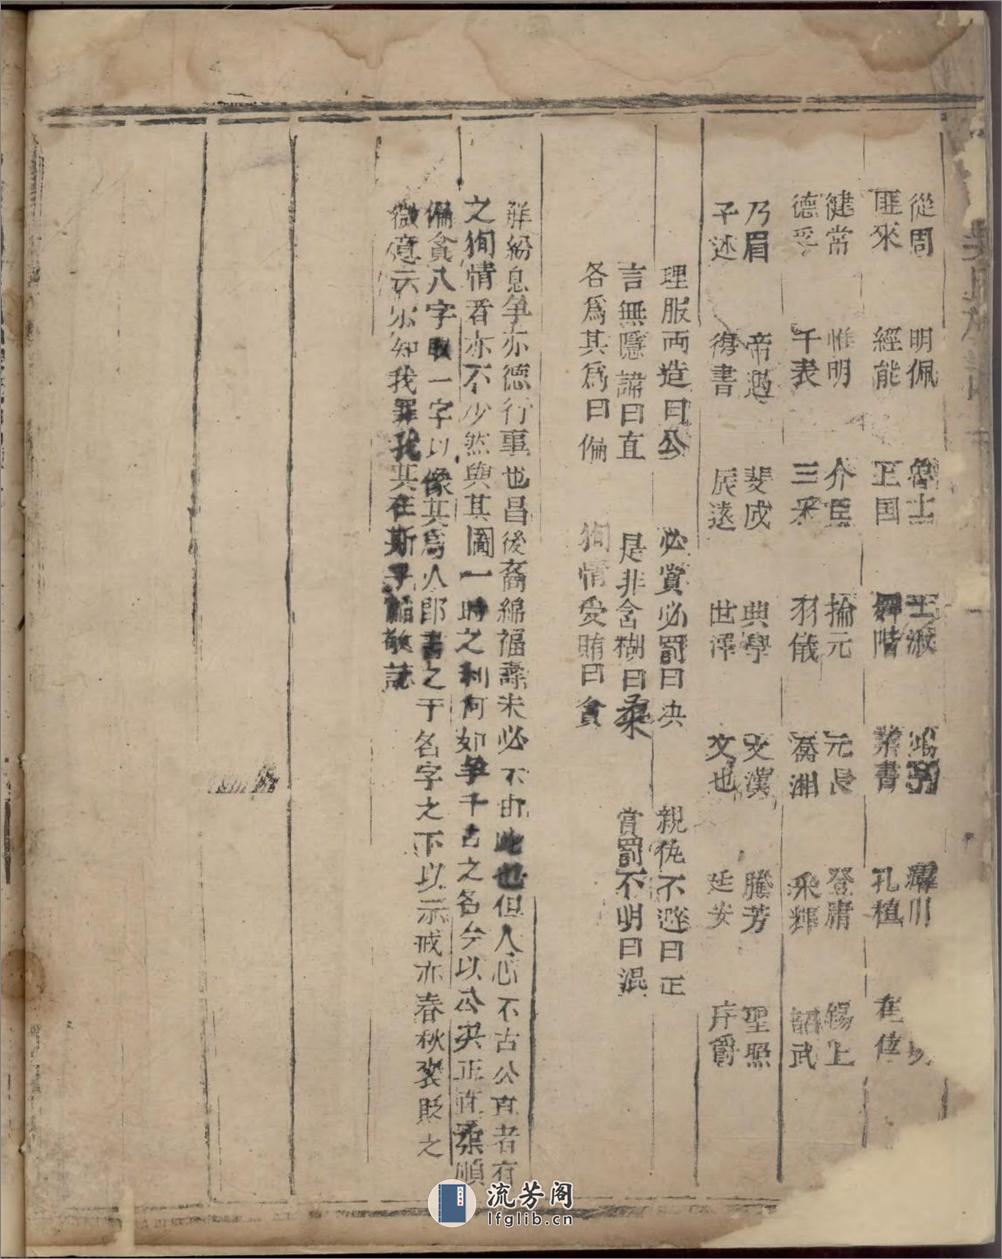 從周 明佩 魯士
匪來 經能 正国 舞階 業書 孔植
健常 惟明 介臣 掄元 元長 登庸 錫上
德孚 千表 三采 羽儀 喬湘 飛輝 韶武
乃眉 帝遐 斐成 典學 文漢 騰芳 聖照
予述 得書 辰遠 世澤 文也 廷安 序爵
理服両造曰公 必賞必罰曰决 親仇不避曰正
言無隱諱曰直 是非含糊曰柔 賞罰不明曰混
各爲其爲曰偏 狥情受賄曰貪
觧紛息争亦德行事也昌後裔綿福壽未必不由此也但人心不古公直者有
之狥情者亦不少然與其圖一時之利何如争千古之名今以公决正直柔順
偏貪八字取一字以像其爲人即書之于名字之下以示戒亦春秋褒貶之
微意云尔知我罪我其在斯乎 敬誌
流芳阁
lfglib.cn